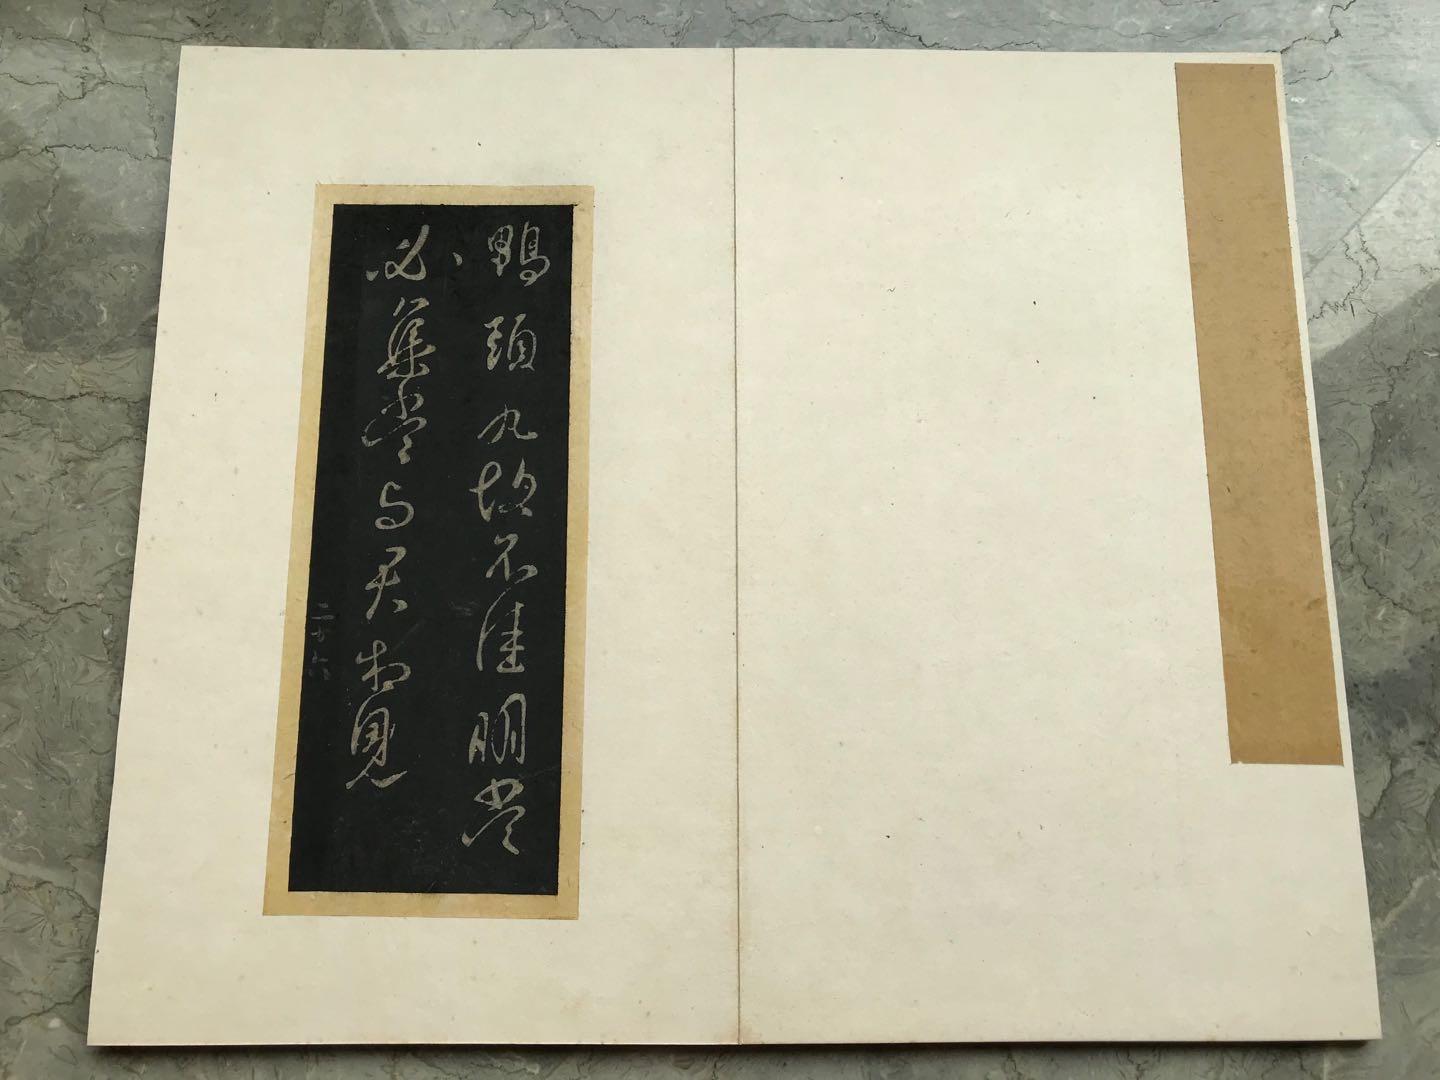 鴨頭丸故不佳明當
必集當与君相見
二十六